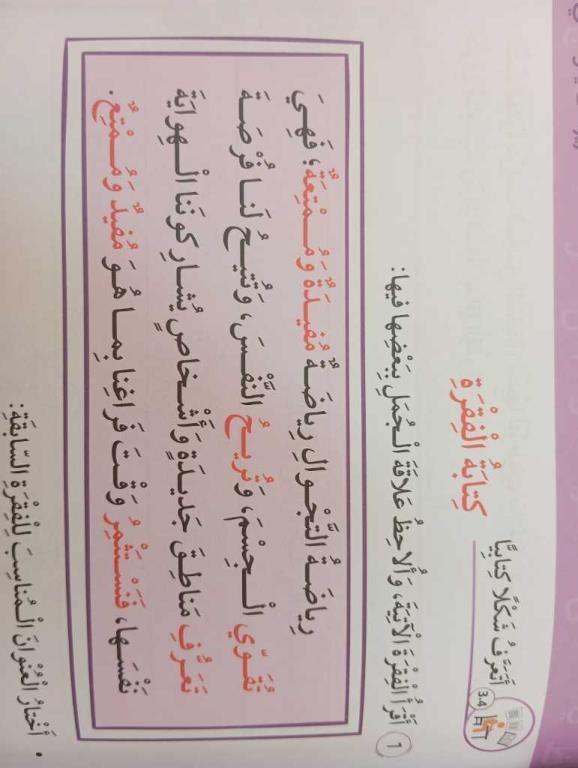 أَتَعَرَّفُ شَكْلًا كِتابِيًّا
3.4
كِتابَةُ الْفِقْرَةِ
1 أَقْرَأُ الْفِقْرَةَ الْآتِيَةَ، وَأُلاحِظُ عَلاقَةَ الْجُمَلِ بِبَعْضِها فيها:
رِياضَةُ التَّجْوالِ رِياضَةٌ مُفيدَةٌ وَمُمْتِعَةٌ؛ فَهِيَ
تُقَوّي الْجِسْمَ، وَتُريحُ النَّفْسَ، وَتُتيحُ لَنا فُرْصَةَ
تَعَرُّفِ مَناطِقَ جَديدَةٍ وَأَشْخاصٍ يُشارِكونَنا الْهِوايَةَ
نَفْسَها، فَنَسْتَثْمِرُ وَقْتَ فَراغِنا بِما هُوَ مُفيدٌ وَمُمْتِعٌ.
• أَخْتارُ الْعُنْوانَ الْمُناسِبَ لِلْفِقْرَةِ السّابِقَةِ: